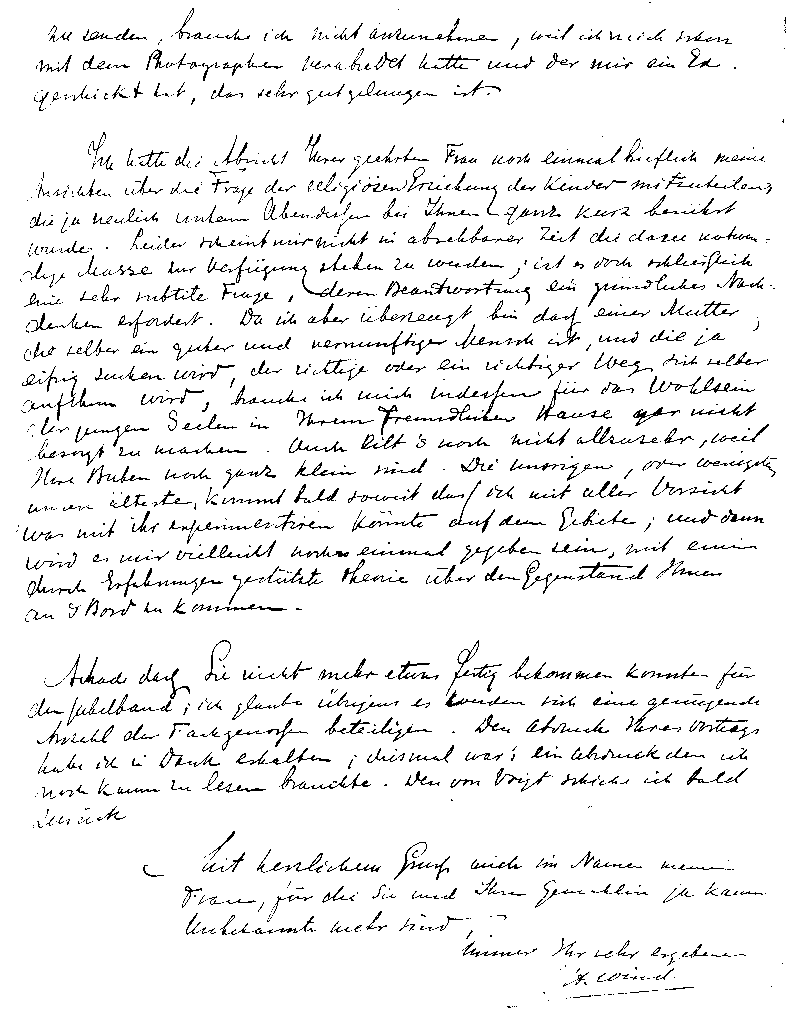 zu senden, brauche ich nicht anzunehmen, weil ich mich schon
mit dem Photographen verabredet hatte und der mir ein Ex.
geschickt hat, das sehr gut gelungen ist.
Ich hatte die Absicht Ihrer geehrten Frau noch einmal brieflich meine
Ansichten über die Frage der religiösen Erziehung der Kinder mitzuteilen,
die ja neulich unterm Abendessen bei Ihnen ganz kurz berührt
wurde. Leider scheint mir nicht in absehbarer Zeit die dazu notwen-
dige Musse zur Verfügung stehen zu werden; ist es doch schliesslich
eine sehr subtile Frage, deren Beantwortung ein gründliches Nach-
denken erfordert. Da ich aber überzeugt bin dass einer Mutter,
die selber ein guter und vernünftiger Mensch ist, und die ja
eifrig suchen wird, der richtige oder ein richtiger Weg sich selber
aufthun wird, brauche ich mich indessen für das Wohlsein
der jungen Seelen in Ihrem freundlichen Hause gar nicht
besorgt zu machen. Auch eilt's noch nicht allzusehr, weil
Ihre Buben noch ganz klein sind. Die unsrigen, oder wenigstens
unsere älteste, kommt bald soweit dass ich mit aller Vorsicht
was mit ihr experimentiren könnte auf dem Gebiete; und dann
wird es mir vielleicht noch einmal gegeben sein, mit einer
durch Erfahrungen gestützte Theorie über den Gegenstand Ihnen
an Bord zu kommen.
Schade dass Sie nicht mehr etwas fertig bekommen konnten für
den Jubelband; ich glaube übrigens es werden sich eine genügende
Anzahl der Fachgenossen beteiligen. Den Abdruck Ihres Vortrags
habe ich in Dank erhalten; diesmal war's ein Abdruck den ich
noch kaum zu lesen brauchte. Den von Voigt schicke ich bald
zurück
Mit herzlichem Gruss auch im Namen meiner
Frau, für die Sie und Ihre Gemahlin ja kaum
Unbekannte mehr sind,
immer Ihr sehr ergebener
W. Wind